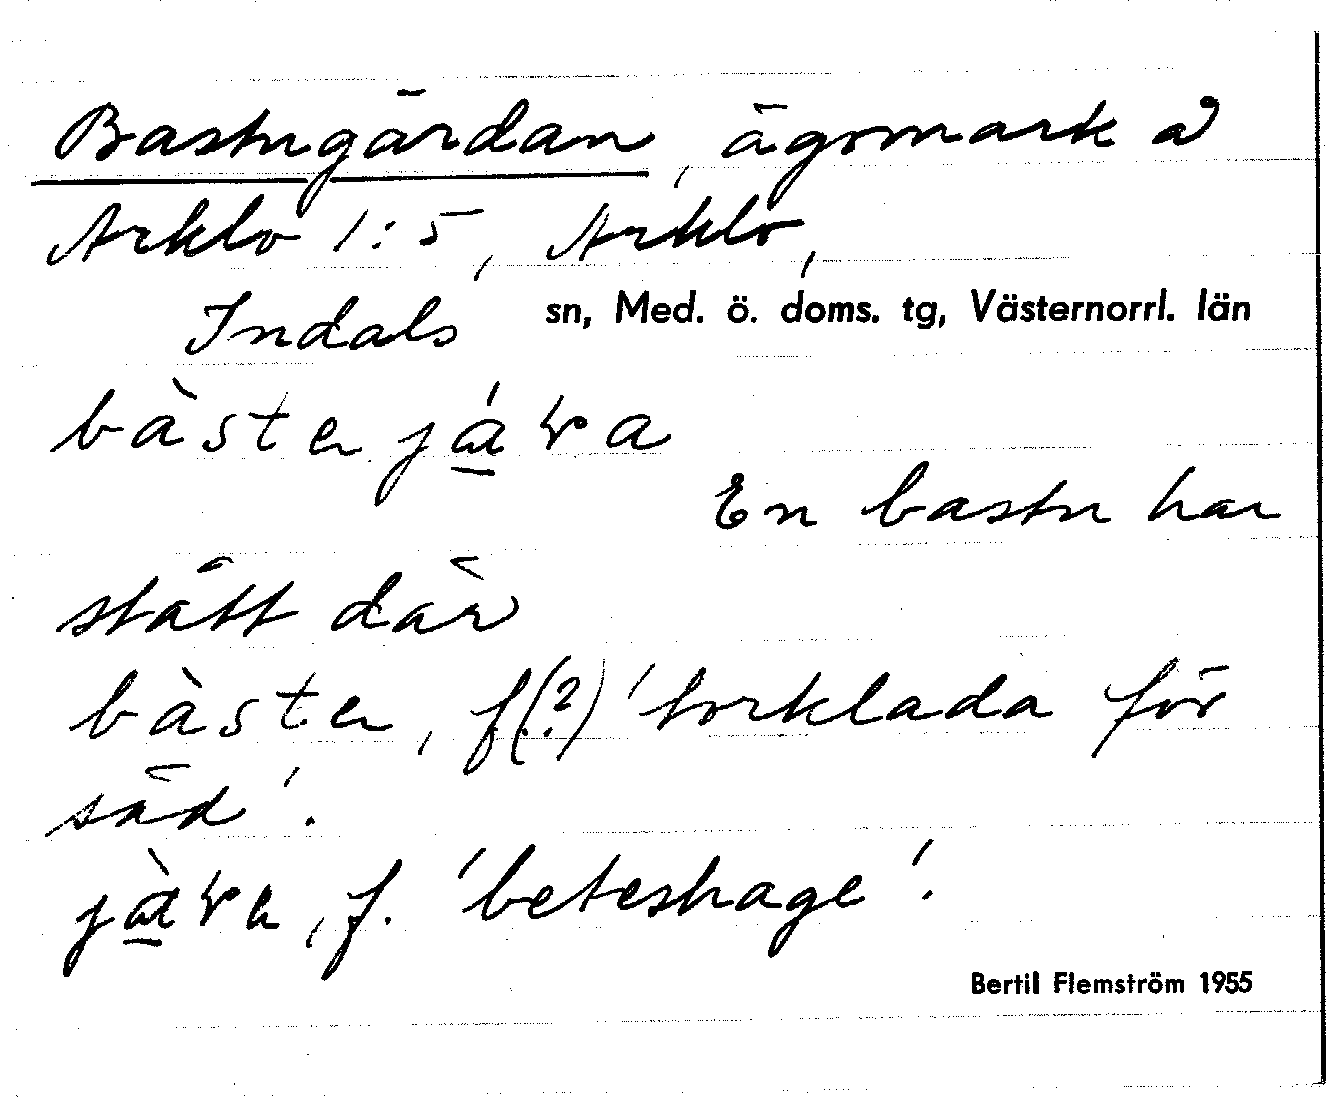 Bastugärdan, ägomark å
Arklo 1:5, Arklo,
Indals sn, Med. ö. doms. tg, Västernorrl. län
En bastu har
stått där
f(?) 'torklada för
säd'.
f. 'beteshage'.
Bertil Flemström 1955